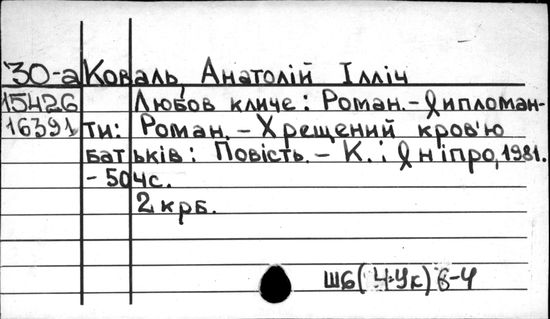 '30-а Коваль, Анатолій Ілліч
15426 Любов кличе: Роман.-Дипломан-
16391 ти: Роман.-Хрещений кров'ю
батьків: Повість.- К.: Дніпро, 1981.
- 504с.
2крб.
Ш6(4Ук)6-4